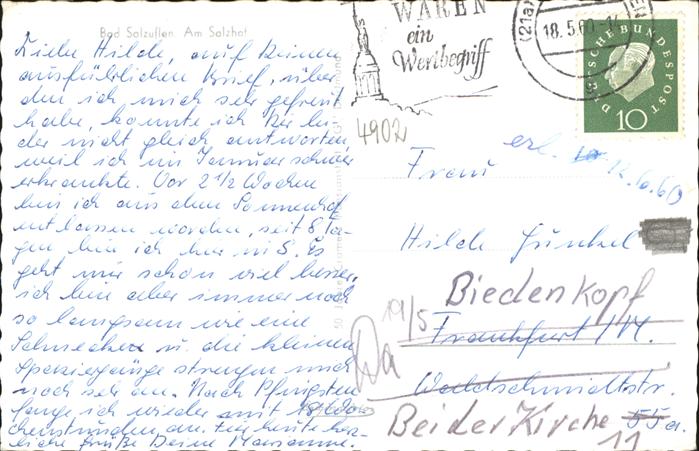 Bad Salzuflen. Am Salzhof
Liebe Hilde, auf Deinen
ausführlichen Brief, über
den ich mich sehr gefreut
habe, konnte ich Dir lei-
der nicht gleich antworten,
weil ich im Januar schwer
erkrankte. Vor 2 1/2 Wochen
bin ich aus dem Sonnenhof
entlassen worden, seit 8 Ta-
gen bin ich hier in S. Es
geht mir schon viel besser,
ich bin aber immer noch
so langsam wie eine
Schnecke u. die kleinen
Spaziergänge strengen mich
noch sehr an. Nach Pfingsten
fange ich wieder mit
chenstunden an. Für heute herz-
liche Grüße Deine Marianne.
WAREN
ein
Wertbegriff
(21a)
18.5.60
DEUTSCHE BUNDESPOST
10
4902
erh. 12.6.60
Frau
Hilde Günkel
Biedenkopf
19/5
Frankfurt/M.
Da
Waldschmidtstr.
Bei der Kirche 55 a.
11